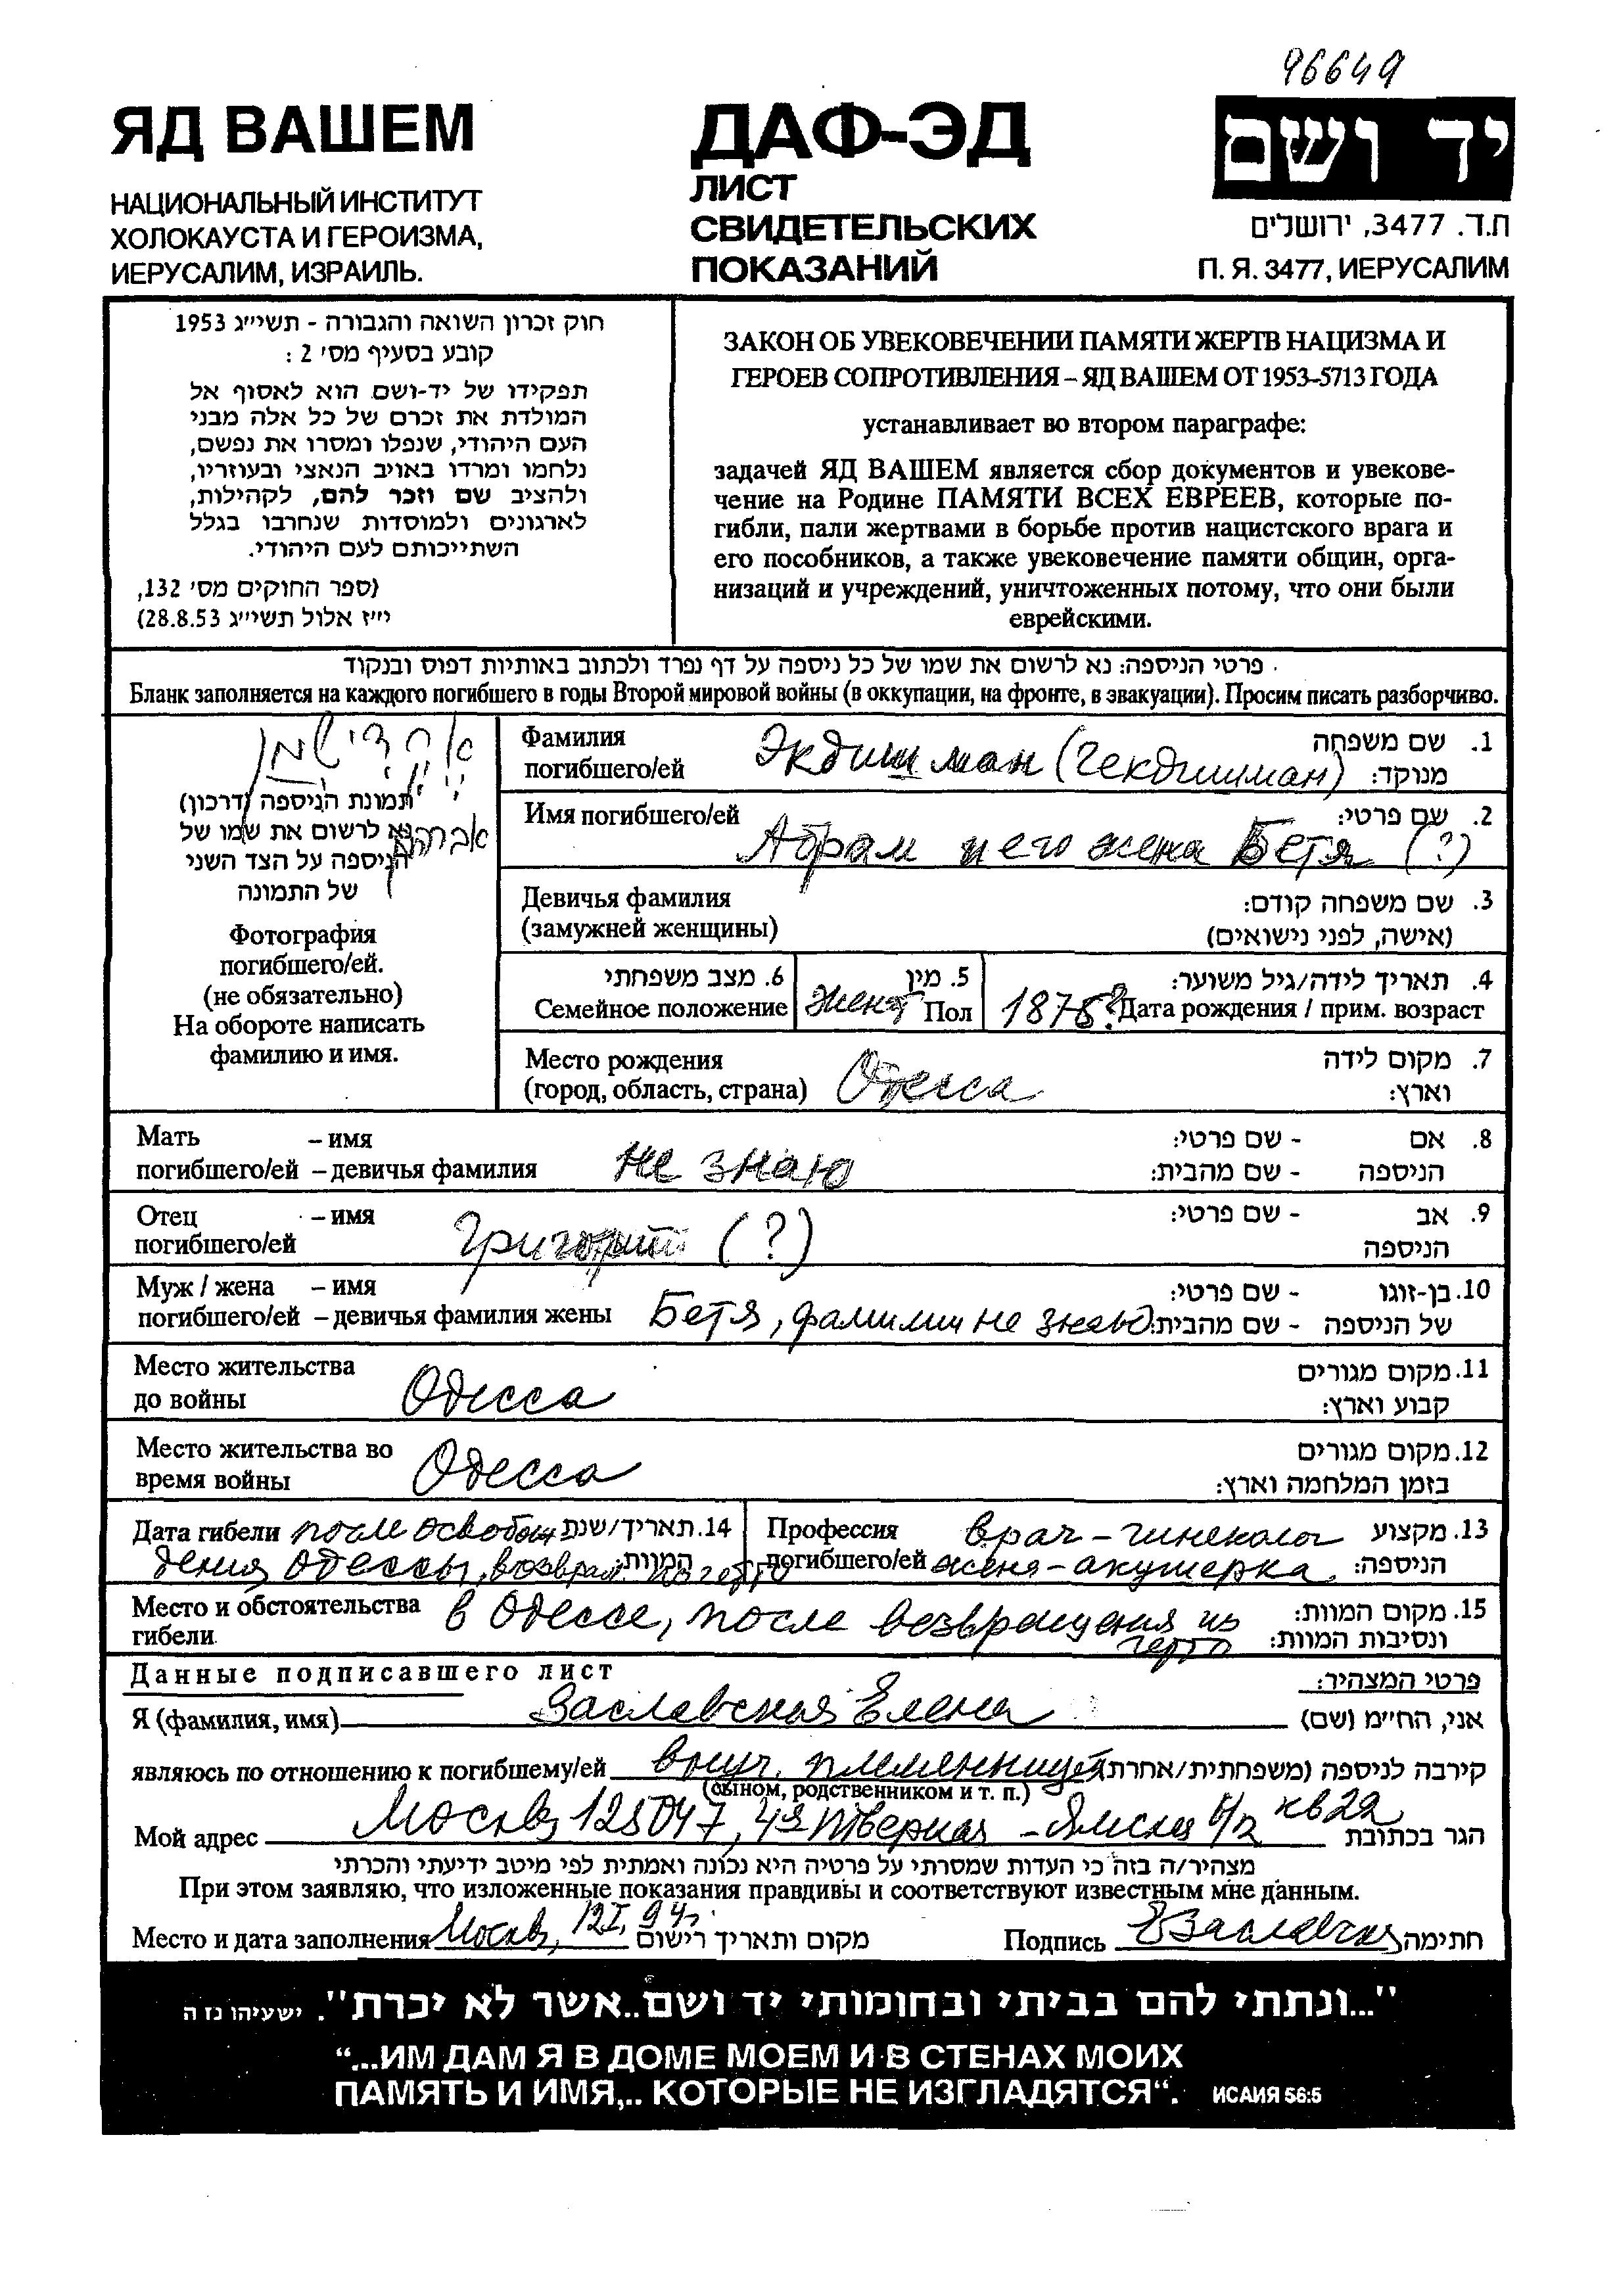 96649
ЯД ВАШЕМ
НАЦИОНАЛЬНЫЙ ИНСТИТУТ
ХОЛОКАУСТА И ГЕРОИЗМА,
ИЕРУСАЛИМ, ИЗРАИЛЬ.
ДАФ-ЭД
ЛИСТ
СВИДЕТЕЛЬСКИХ
ПОКАЗАНИЙ
יד ושם
ת.ד. 3477, ירושלים
П. Я. 3477, ИЕРУСАЛИМ
חוק זכרון השואה והגבורה - תשי״ג 1953
קובע בסעיף מס׳ 2 :
תפקידו של יד-ושם הוא לאסוף אל
המולדת את זכרם של כל אלה מבני
העם היהודי, שנפלו ומסרו את נפשם,
נלחמו ומרדו באויב הנאצי ובעוזריו,
ולהציב שם וזכר להם, לקהילות,
לארגונים ולמוסדות שנחרבו בגלל
השתייכותם לעם היהודי.
(ספר החוקים מס׳ 132,
י״ז אלול תשי״ג 28.8.53)
ЗАКОН ОБ УВЕКОВЕЧЕНИИ ПАМЯТИ ЖЕРТВ НАЦИЗМА И
ГЕРОЕВ СОПРОТИВЛЕНИЯ – ЯД ВАШЕМ ОТ 1953–5713 ГОДА
устанавливает во втором параграфе:
задачей ЯД ВАШЕМ является сбор документов и увекове-
чение на Родине ПАМЯТИ ВСЕХ ЕВРЕЕВ, которые по-
гибли, пали жертвами в борьбе против нацистского врага и
его пособников, а также увековечение памяти общин, орга-
низаций и учреждений, уничтоженных потому, что они были
еврейскими.
פרטי הניספה: נא לרשום את שמו של כל ניספה על דף נפרד ולכתוב באותיות דפוס ובנקוד
Бланк заполняется на каждого погибшего в годы Второй мировой войны (в оккупации, на фронте, в эвакуации). Просим писать разборчиво.
תמונת הניספה (דרכון)
נא לרשום את שמו של
הניספה על הצד השני
של התמונה
אברהם
Фотография
погибшего/ей.
(не обязательно)
На обороте написать
фамилию и имя.
Фамилия Экдишман (Гекдишман) 1. שם משפחה
погибшего/ей מנוקד:
Имя погибшего/ей 2. שם פרטי:
Абрам и его жена Бетя (?)
Девичья фамилия 3. שם משפחה קודם:
(замужней женщины) (אישה, לפני נישואים)
6. מצב משפחתי 5. מין 4. תאריך לידה/גיל משוער:
Семейное положение женат Пол 1875? Дата рождения / прим. возраст
Место рождения 7. מקום לידה
(город, область, страна) Одесса וארץ:
Мать – имя 8. אם - שם פרטי:
погибшего/ей – девичья фамилия не знаю הניספה - שם מהבית:
Отец – имя 9. אב - שם פרטי:
погибшего/ей Григорий (?) הניספה
Муж / жена – имя 10. בן-זוגו - שם פרטי:
погибшего/ей – девичья фамилия жены Бетя, фамилии не знаю של הניספה - שם מהבית:
Место жительства 11. מקום מגורים
до войны Одесса קבוע וארץ:
Место жительства во 12. מקום מגורים
время войны Одесса בזמן המלחמה וארץ:
Дата гибели после освобож 14. תאריך/שנת
дения Одессы, возвращ. из гетто המוות:
Профессия врач-гинеколог 13. מקצוע
погибшего/ей жена-акушерка הניספה:
Место и обстоятельства в Одессе, после возвращения из 15. מקום המוות:
гибели гетто ונסיבות המוות:
Данные подписавшего лист פרטי המצהיר:
Я (фамилия, имя) Заславская Елена אני, הח״מ (שם)
являюсь по отношению к погибшему/ей внуч. племянницей קירבה לניספה (משפחתית/אחרת)
(сыном, родственником и т. п.)
Мой адрес Москва 125047, 4я Тверская-Ямская кв 22 הגר בכתובת
מצהיר/ה בזה כי העדות שמסרתי על פרטיה היא נכונה ואמתית לפי מיטב ידיעתי והכרתי
При этом заявляю, что изложенные показания правдивы и соответствуют известным мне данным.
Место и дата заполнения Москва, 12 I 94г. מקום ותאריך רישום Подпись ЕЗаславская חתימה
"...ונתתי להם בביתי ובחומותי יד ושם..אשר לא יכרת". ישעיהו נז ה
“...ИМ ДАМ Я В ДОМЕ МОЕМ И В СТЕНАХ МОИХ
ПАМЯТЬ И ИМЯ,.. КОТОРЫЕ НЕ ИЗГЛАДЯТСЯ“. ИСАИЯ 56:5